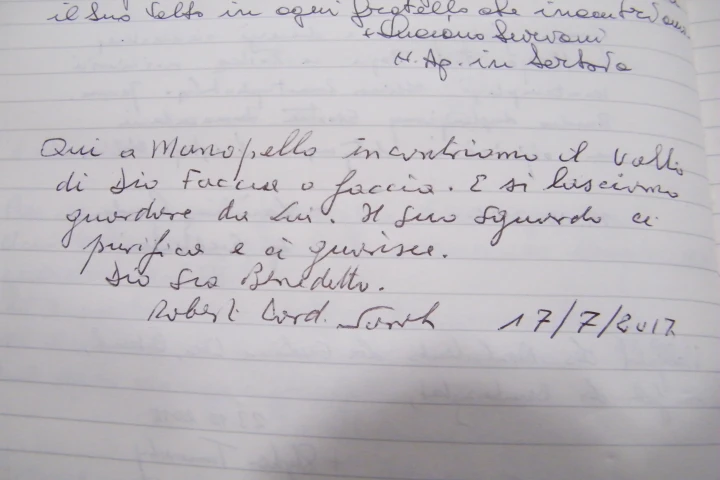 il Suo Volto in ogni fratello che incontriamo.
+ Luciano Suriani
N. Ap. in Serbia
Qui a Manoppello incontriamo il Volto
di Dio Faccia a faccia. E si lasciamo
guardare da Lui. Il suo sguardo ci
purifica e ci guarisce.
Dio sia Benedetto.
Robert Card. Sarah 17/7/2017